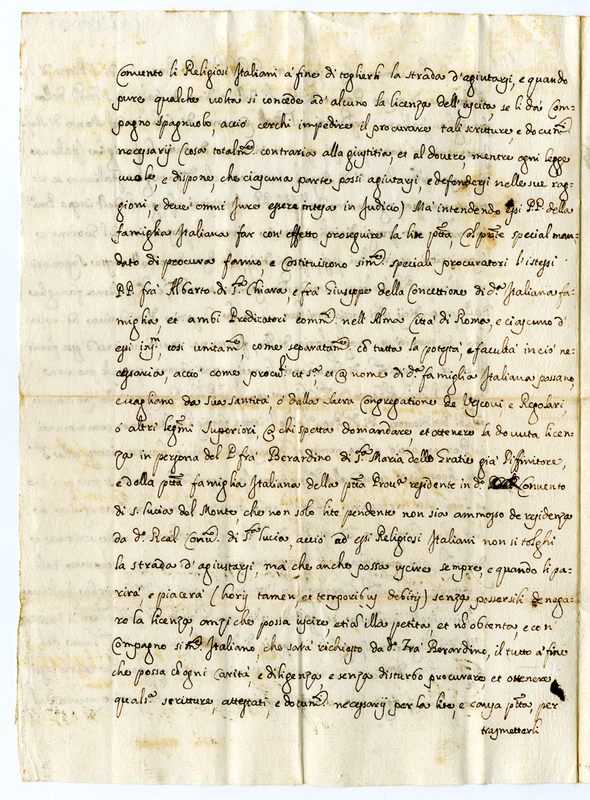 Convento li Religiosi Italiani à fine di togherli la strada d'agiutarsi, e quando
pure qualche volta si concede ad' alcuno la licenza dell'uscita, se li dà Com=
pagno spagnuolo, acciò cerchi impedire il procurare tali scritture, e docum.ti
necessarij (cosa totalm.te contraria alla giustitia, et al dovere mentre ogni legge
vuole, e dispone, che ciascuna parte possi agiutarsi, e defendersi nelle sue rag=
gioni, e deve omni Jure essere intesa in Judicio) Mà intendendo essi P.P. della
famiglia Italiana far con effetto proseguire la lite p.tta, col p.nte special man=
dato di procura fanno, e Costituiscono sim.te speciali procuratori l'istessi
P.P. frà Alberto di S.ta Chiara, e frà Giuseppe della Concettione di d.a Italiana fa=
miglia, et ambi Predicatori comm.ti nell'Alma Città di Roma, e ciascuno d'
essi in s.m, così unitam.te, come separatam.te cò tutta la potestà, e facultà in ciò ne=
cessaria, acciò come procu.ri ut s.a et @ nome di d.a famiglia Italiana possano,
e vagliano da sua santità, ò dalla sacra Congregatione de Vescovi e Regolari,
ò altri leg.mi superiori, @ chi spetta domandare, et ottenere la dovuta licen=
za in persona del P. frà Berardino di S.ta Maria delle Gratie già Diffinitore,
e della p.tta famiglia Italiana della p.tta Prov.a residente in d.o Convento
di S. Lucia del Monte, che non solo lite pendente non sia ammosso de residenza
da d.o Real Conv.to di S.ta Lucia, acciò ad essi Religiosi Italiani non si tolghi
la strada d'agiutarsi, mà che anche possa uscire sempre, e quando li pa=
rirà, e piacerà (horis tamen et temporibus debitis) senza possersili denega=
ro la licenza, anzi che possa uscire, etiã illa petita, et nõ obtenta, e con
Compagno sim.te Italiano, che sarà richiesto da d.o Frà Berardino, il tutto à fine
che possa cõ ogni carità, e diligenza e senza disturbo procurare, et ottenere
quals.a scritture, attestati, e docum.ti necessarij per la lite, e causa p.tta, per
trasmetterli